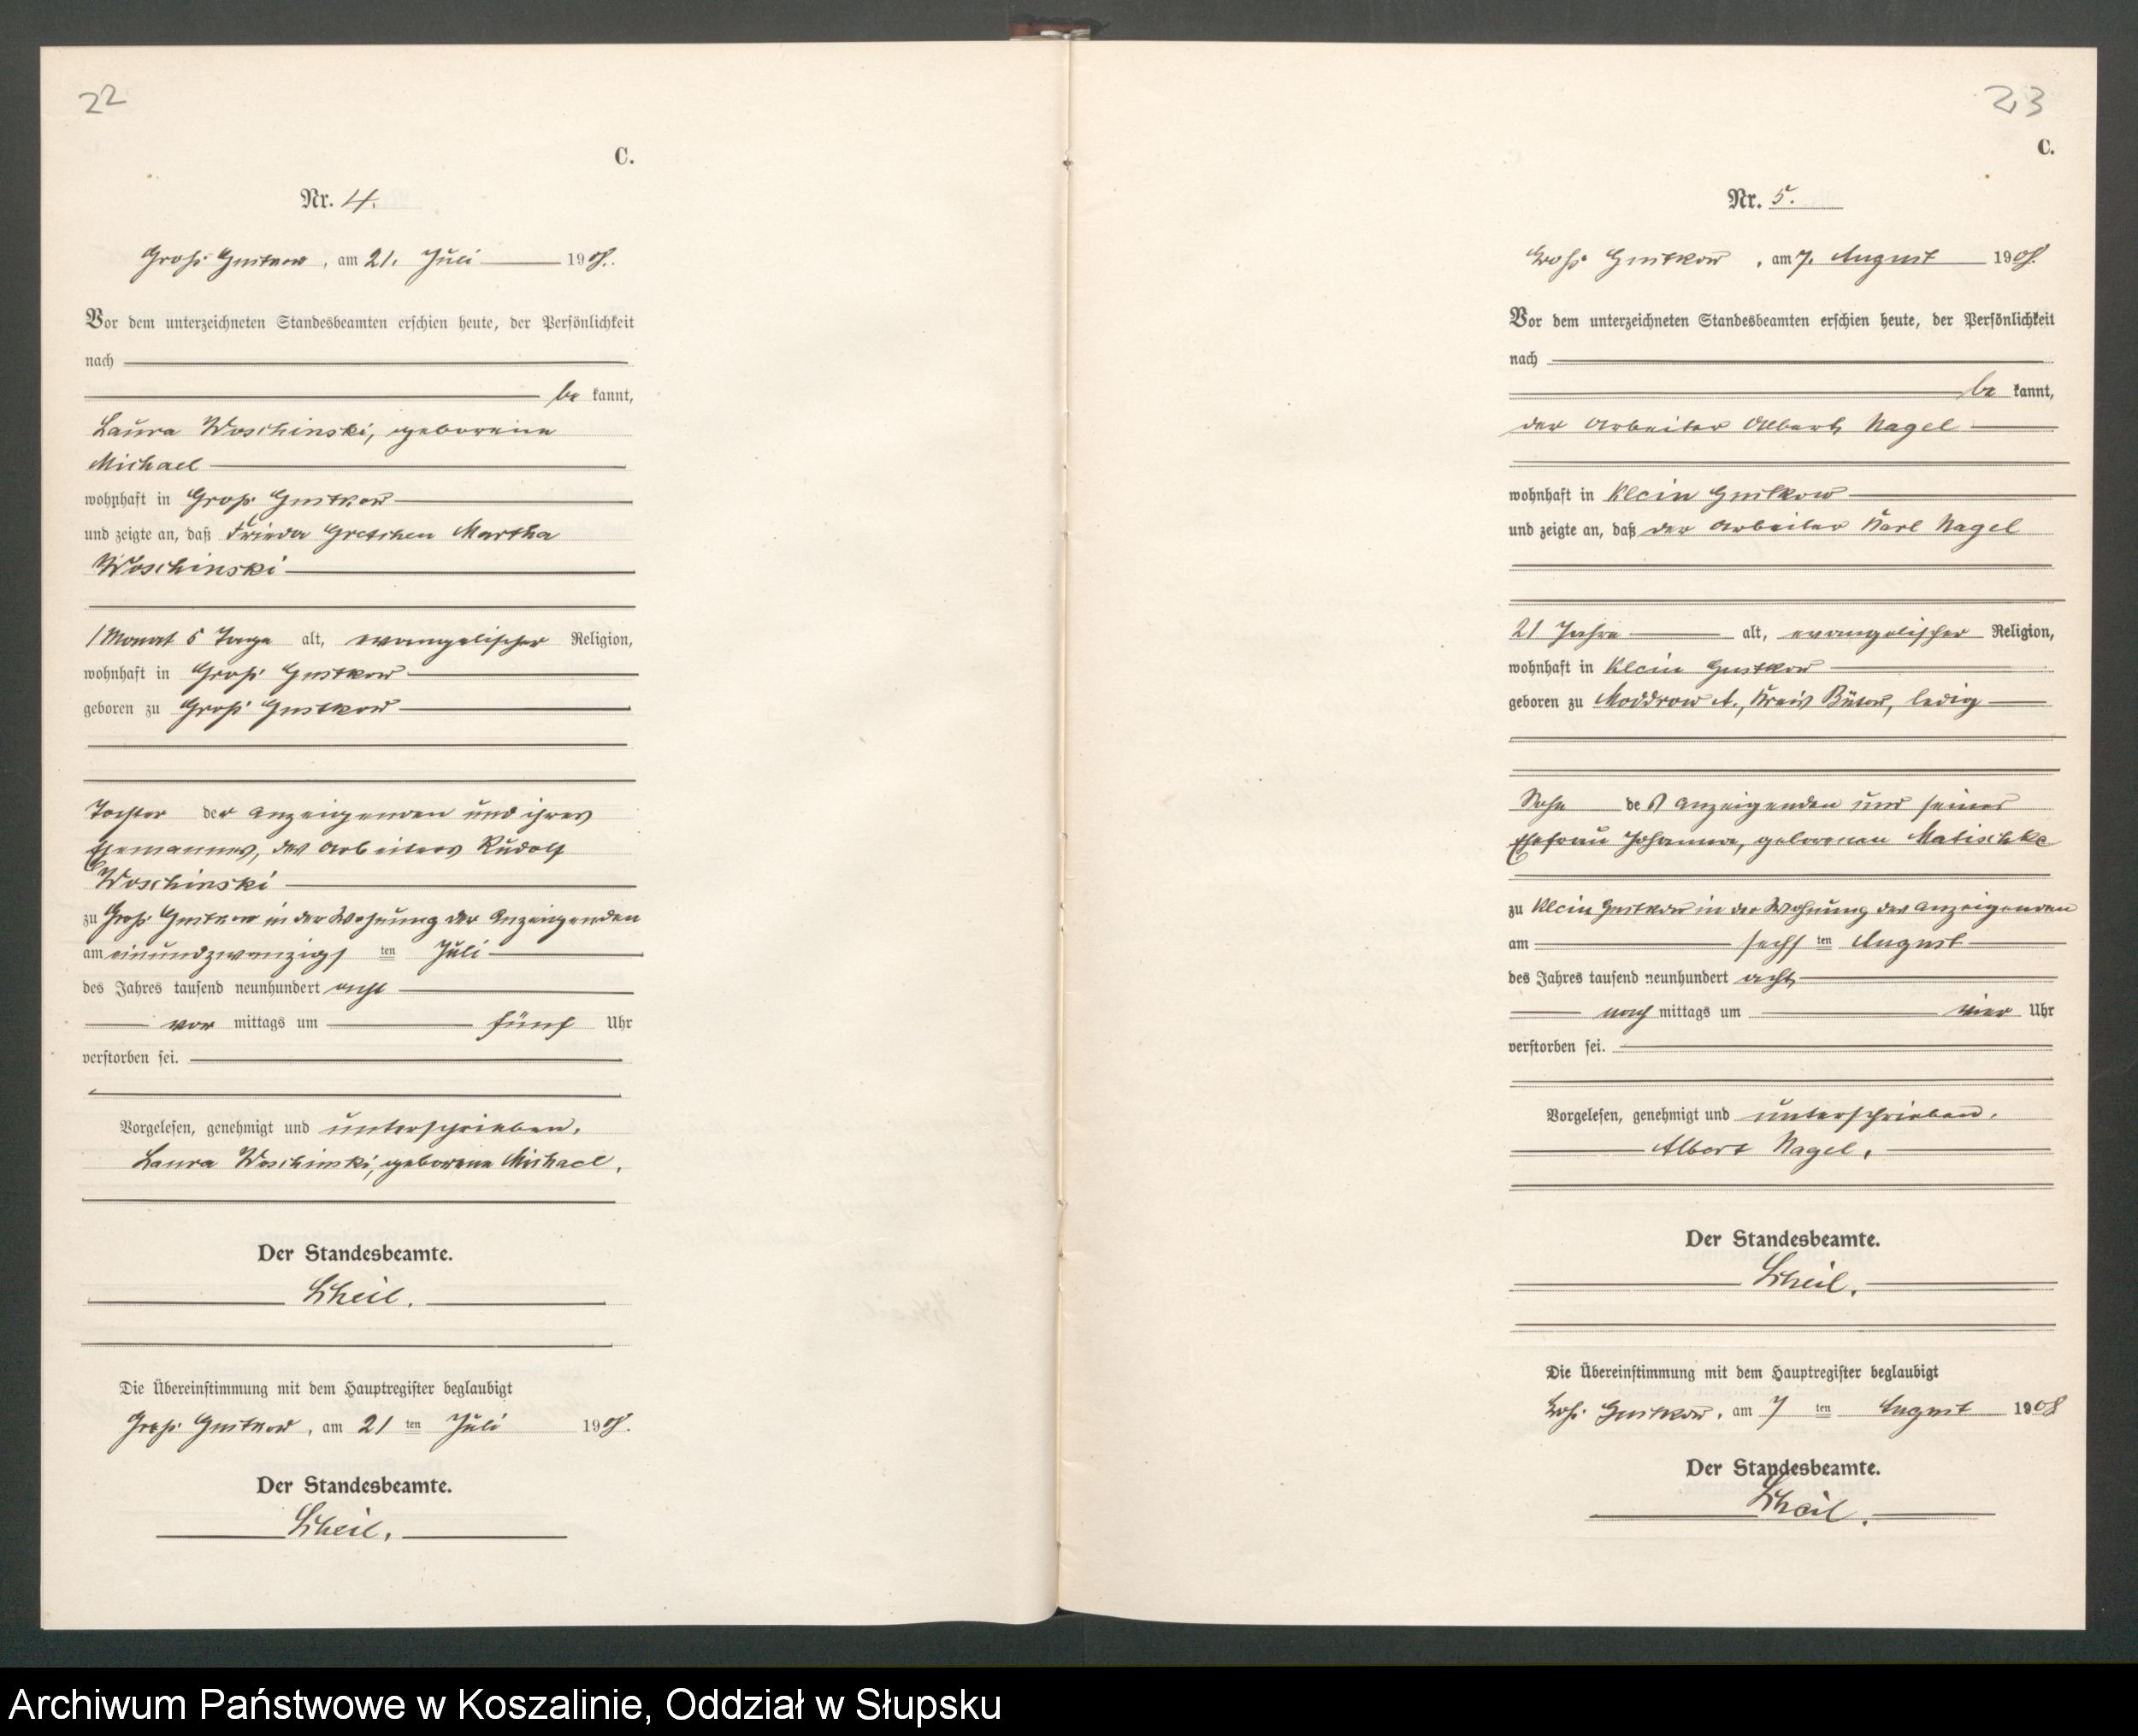 22
C.
Nr. 4.
Groß Gustkow, am 21. Juli 1908.
Vor dem unterzeichneten Standesbeamten erschien heute, der Persönlichkeit
nach
bekannt,
Laura Woschinski, geborene
Michael
wohnhaft in Groß Gustkow
und zeigte an, daß Frieda Gretchen Martha
Woschinski
1 Monat 5 Tage alt, evangelischer Religion,
wohnhaft in Groß Gustkow
geboren zu Groß Gustkow
Tochter der Anzeigenden und ihres
Ehemannes, des Arbeiters Rudolf
Woschinski
zu Groß Gustkow in der Wohnung der Anzeigenden
am einundzwanzigsten Juli
des Jahres tausend neunhundert acht
vormittags um fünf Uhr
verstorben sei.
Vorgelesen, genehmigt und unterschrieben.
Laura Woschinski, geborene Michael.
Der Standesbeamte.
Scheil.
Die Übereinstimmung mit dem Hauptregister beglaubigt
Groß Gustkow, am 21 ten Juli 1908.
Der Standesbeamte.
Scheil.
23
C.
Nr. 5.
Groß Gustkow, am 7. August 1908.
Vor dem unterzeichneten Standesbeamten erschien heute, der Persönlichkeit
nach
bekannt,
der Arbeiter Albert Nagel
wohnhaft in Klein Gustkow
und zeigte an, daß der Arbeiter Karl Nagel
21 Jahre alt, evangelischer Religion,
wohnhaft in Klein Gustkow
geboren zu Moddrow A., Kreis Bütow, ledig
Sohn des Anzeigenden und seiner
Ehefrau Johanna, geborenen Matischke
zu Klein Gustkow in der Wohnung des Anzeigenden
am sechsten August
des Jahres tausend neunhundert acht
nachmittags um vier Uhr
verstorben sei.
Vorgelesen, genehmigt und unterschrieben.
Albert Nagel.
Der Standesbeamte.
Scheil.
Die Übereinstimmung mit dem Hauptregister beglaubigt
Groß Gustkow, am 7 ten August 1908
Der Standesbeamte.
Scheil.
Archiwum Państwowe w Koszalinie, Oddział w Słupsku